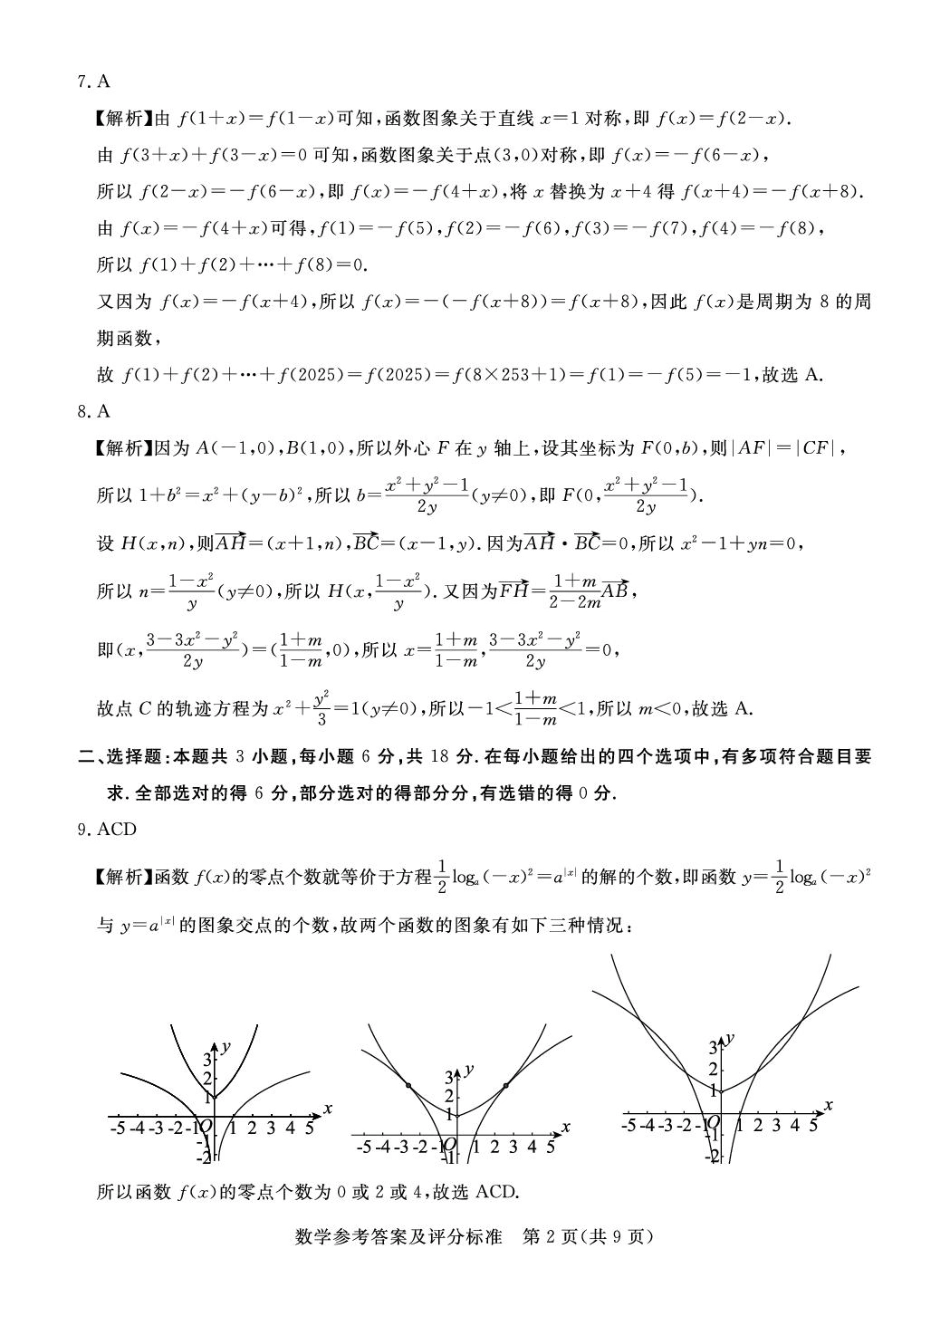 7. A
【解析】由 f(1+x)=f(1-x)可知,函数图象关于直线 x=1 对称,即 f(x)=f(2-x).
由 f(3+x)+f(3-x)=0 可知,函数图象关于点(3,0)对称,即 f(x)=-f(6-x),
所以 f(2-x)=-f(6-x),即 f(x)=-f(4+x),将 x 替换为 x+4 得 f(x+4)=-f(x+8).
由 f(x)=-f(4+x)可得,f(1)=-f(5),f(2)=-f(6),f(3)=-f(7),f(4)=-f(8),
所以 f(1)+f(2)+…+f(8)=0.
又因为 f(x)=-f(x+4),所以 f(x)=-(-f(x+8))=f(x+8),因此 f(x)是周期为 8 的周
期函数,
故 f(1)+f(2)+…+f(2025)=f(2025)=f(8×253+1)=f(1)=-f(5)=-1,故选 A.
8. A
【解析】因为 A(-1,0),B(1,0),所以外心 F 在 y 轴上,设其坐标为 F(0,b),则|AF|=|CF|,
所以 1+b²=x²+(y-b)²,所以 b=\frac{x²+y²-1}{2y}(y≠0),即 F(0,\frac{x²+y²-1}{2y}).
设 H(x,n),则\overrightarrow{AH}=(x+1,n),\overrightarrow{BC}=(x-1,y).因为\overrightarrow{AH}·\overrightarrow{BC}=0,所以 x²-1+yn=0,
所以 n=\frac{1-x²}{y}(y≠0),所以 H(x,\frac{1-x²}{y}).又因为\overrightarrow{FH}=\frac{1+m}{2-2m}\overrightarrow{AB},
即(x,\frac{3-3x²-y²}{2y})=(\frac{1+m}{1-m},0),所以 x=\frac{1+m}{1-m},\frac{3-3x²-y²}{2y}=0,
故点 C 的轨迹方程为 x²+\frac{y²}{3}=1(y≠0),所以-1<\frac{1+m}{1-m}<1,所以 m<0,故选 A.
二、选择题:本题共 3 小题,每小题 6 分,共 18 分.在每小题给出的四个选项中,有多项符合题目要
求.全部选对的得 6 分,部分选对的得部分分,有选错的得 0 分.
9. ACD
【解析】函数 f(x)的零点个数就等价于方程\frac{1}{2}logₐ(-x)²=a^{|x|}的解的个数,即函数 y=\frac{1}{2}logₐ(-x)²
与 y=a^{|x|}的图象交点的个数,故两个函数的图象有如下三种情况:
y
3
2
1
x
-5 -4 -3 -2 -1 O 1 2 3 4 5
-1
-2
y
3
2
1
x
-5 -4 -3 -2 -1 O 1 2 3 4 5
-1
y
3
2
1
x
-5 -4 -3 -2 -1 O 1 2 3 4 5
-1
-2
所以函数 f(x)的零点个数为 0 或 2 或 4,故选 ACD.
数学参考答案及评分标准 第 2 页(共 9 页)